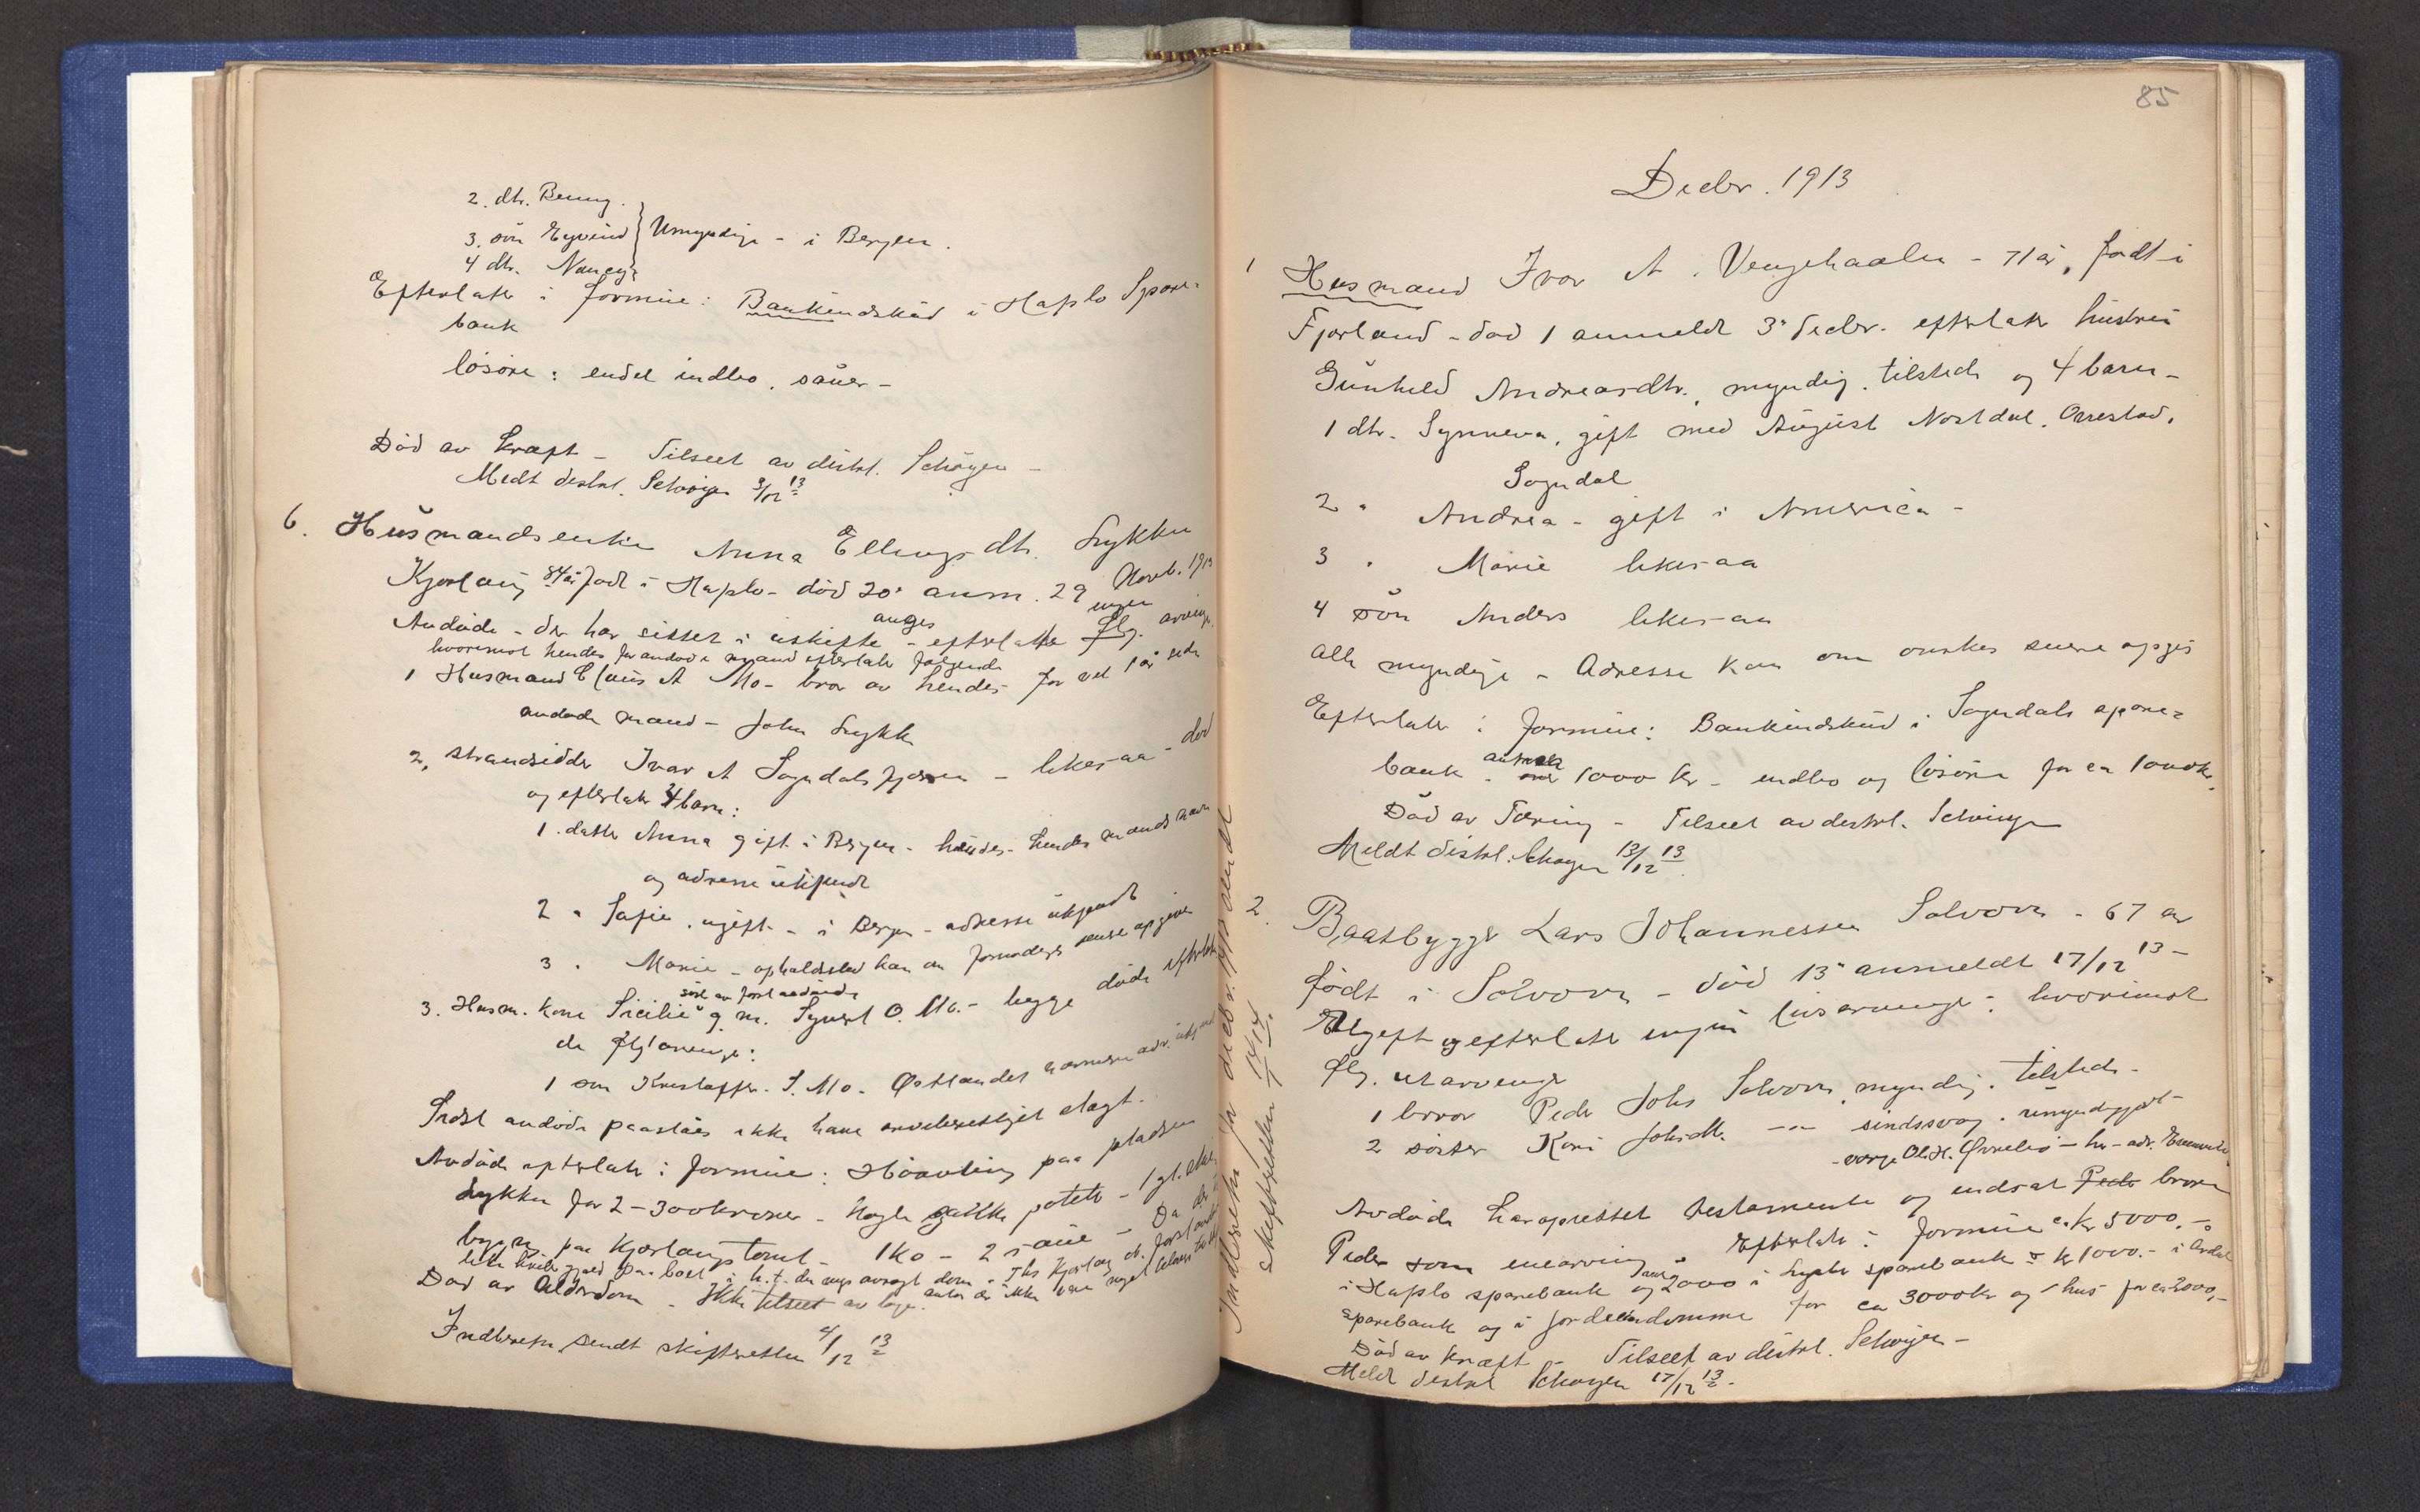 2. dtr. Benny.
3. søn Eyvind } Umyndige - i Bergen.
4 dtr. Nancy
Efterlater i formue: Bankindskud i Hafslo Spare-
bank
løsøre: endel indbo, sauer -
Død av kræft - Tilseet av distrl. Schøyen -
Meldt distrl. Schøyen 3/12 13
6. Husmandsenke Anna Ellingsdtr. Lykken
Kjørlaug 84 år født i Hafslo - død 20' anm. 29 Novb. 1913
Avdøde - der har sittet i uskifte - angis efterlate ingen flg. arvinger,
hvorimot hendes forandøde mand efterlater følgende
1 Husmand Claus A Mo - bror av hendes for vel 1 år siden
avdøde mand - John Lykken
2, strandsidder Ivar A Sogndalsfjæren - likesaa - død
og efterlater 4 barn:
1. datter Anna gift i Bergen - hendes mands navn
og adresse ukjendt
2 " Sofie, ugift - i Bergen - adresse ukjendt
3 " Marie - opholdssted kan om fornødiges senere opgives
3. Husm. kone Sicilie g. m. Sjurd O. Mo. - begge døde efterlater
søst av førstavdøde
de flg. arvinger:
1 søn Kristoffer S. Mo. Østlandet nærmere adr. ukjendt
Sidst avdøde paastaaes ikke have arveberettiget slegt.
Avdøde efterlater i formue: Høavling paa pladsen
Lykken for 2-300 kroner - Nogle sække poteter - 1 gl.
bygn. paa Kjørlaug tomt - 1 ko - 2 sauer - Da der
Død av Alderdom - Ikke tilseet av læge.
Indberetn. sendt skifteretten 4/12 13
Indberetn for decbr. 1913 sendt
skifteretten 1/1 14.
85
Decbr. 1913
1 Husmand Ivar A. Vengehaalen - 71 år, født i
Fjærland - død 1 anmeldt 3' decbr. efterlater hustru
Gunhild Andreasdtr., myndig, tilstede og 4 barn -
1 dtr. Synneva, gift med August Nostdal, Ørrestad,
Sogndal
2 " Andrea - gift i America -
3 " Marie likesaa
4 søn Anders likesaa
alle myndige - Adresse kan om ønskes senere opgis
Efterlater i formue: Bankindskud i Sogndals spare-
bank - 1000 kr - indbo og løsøre for ca 1000 kr.
Død av Tæring - Tilseet av distrl. Schøyen
Meldt distrl. Schøyen 13/12 13.
2. Baatbygger Lars Johannessen Solvorn - 67 år
født i Solvorn - død 13' anmeldt 17/12 13 -
Ugift og efterlater ingen livsarvinge - hvorimot
flg. utarvinge
1 bror Peder Johs Solvorn, myndig, tilstede -
2 søster Kari Johsdtr. -"- sindssvag, umyndiggjort -
- verge Ole H. Ørrebø - hr - adr.
Avdøde har oprettet testamente og indsat Peder broren
Peder som enearving. Efterlater i formue ca. kr 5000.-
i Hafslo sparebank og 2000 i Lyster sparebank + kr 1000.- i Årdal
sparebank og i jordeiendomme for ca 3000 kr og 1 hus for ca 2000,-
Død av kræft - Tilseet av distrl. Schøyen -
Meldt distrl Schøyen 17/12 13 -